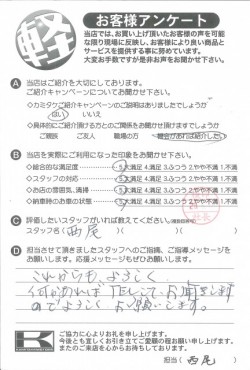 軽
お客様アンケート
当店では、お買い上げ頂いたお客様の声を可能な
限り現場に反映し、お客様により良い商品と
サービスを提供する事に努めています。
大変お手数ですが是非お声をお聞かせ下さい。
A 当店はご紹介を大切にしております。
ご紹介キャンペーンについてお聞かせ下さい。
◇カミタケご紹介キャンペーンのご説明はありましたでしょうか
はい いいえ
◇具体的にご紹介頂ける方とのご関係をお聞かせ頂けますでしょうか
ご親戚 ご友人 職場の方
B 当店を実際にご利用になった印象をお聞かせ下さい。
◇総合的な満足度 5.大満足 4.満足 3.ふつう 2.やや不満 1.不満
◇スタッフの対応 5.大満足 4.満足 3.ふつう 2.やや不満 1.不満
◇お店の雰囲気、清掃 5.大満足 4.満足 3.ふつう 2.やや不満 1.不満
◇納車時のお車の状態 5.大満足 4.満足 3.ふつう 2.やや不満 1.不満
C 評価したいスタッフがいれば教えてください。(複数回答可)
スタッフ名( 西尾 )
D 担当させて頂きましたスタッフへのご指摘、ご指導メッセージを
お願いします。応援メッセージもぜひお願いします。
これからも、よろしく
何かあれば TELして、お聞きします
のでよろしくお願いします。
K
ご協力に心よりお礼を申し上げます。
今後とも宜しくお引き立てご愛顧の程お願い申し上げます。
またのご来店を心からお待ちしております。
担当( 西尾 )